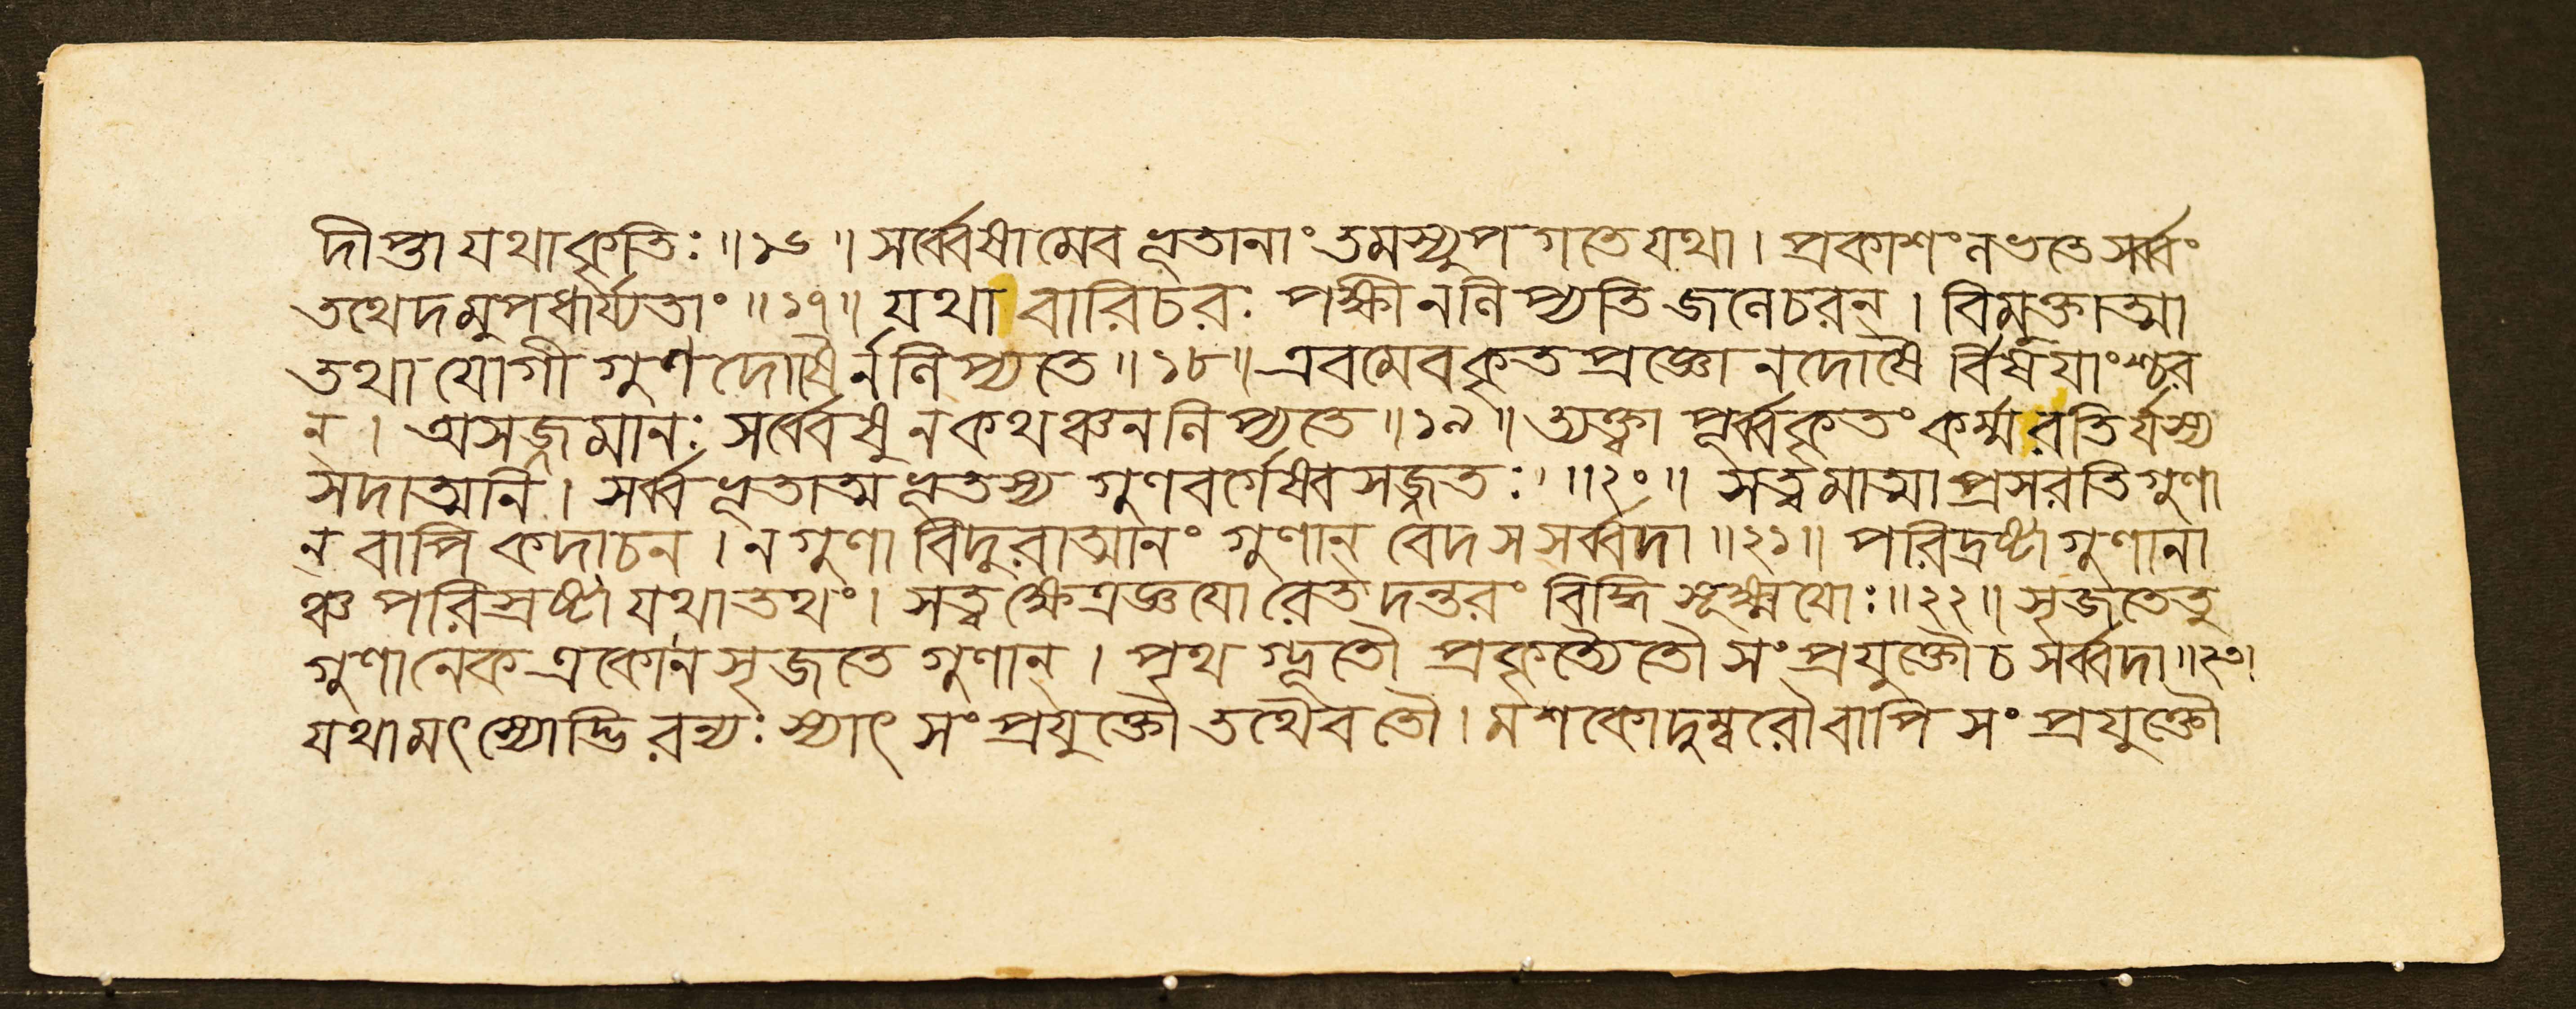 দীপ্তা যথাকৃতিঃ ॥ ১৬ ॥ সর্ব্বেষামেব ভূতানাং তমস্যুপগতে যথা । প্রকাশং লভতে সর্ব্বং
তথেদমুপধার্য্যতাং ॥ ১৭ ॥ যথা বারিচরঃ পক্ষী ন লিপ্যতি জলে চরন্ । বিমুক্তাত্মা
তথা যোগী গুণদোষৈর্ন লিপ্যতে ॥ ১৮ ॥ এবমেব কৃতপ্রজ্ঞো ন দোষৈর্বিষযাংশ্চর
ন্ । অসজ্জমানঃ সর্ব্বেষু ন কথঞ্চন লিপ্যতে ॥ ১৯ ॥ ত্যক্ত্বা পূর্ব্বকৃতং কর্ম্ম রতির্যস্য
সদাত্মনি । সর্ব্বভূতাত্মভূতস্য গুণবর্গেষ্বসজ্জতঃ ॥ ২০ ॥ সত্ত্বমাত্মা প্রসরতি গুণা
ন্ বাপি কদাচন । ন গুণা বিদুরাত্মানং গুণান্ বেদ স সর্ব্বদা ॥ ২১ ॥ পরিদ্রষ্টা গুণানা
ঞ্চ পরিস্রষ্টা যথাতথং । সত্ত্বক্ষেত্রজ্ঞযোরেতদন্তরং বিদ্ধি সূক্ষ্মযোঃ ॥ ২২ ॥ সৃজতে তু
গুণানেক একো ন সৃজতে গুণান্ । পৃথগ্ভূতৌ প্রকৃত্যৈতৌ সংপ্রযুক্তৌ চ সর্ব্বদা ॥ ২৩ ।
যথা মৎস্যোদ্ভিরন্যঃ স্যাৎ সংপ্রযুক্তৌ তথৈব তৌ । মশকোদুম্বরৌ বাপি সংপ্রযুক্তৌ